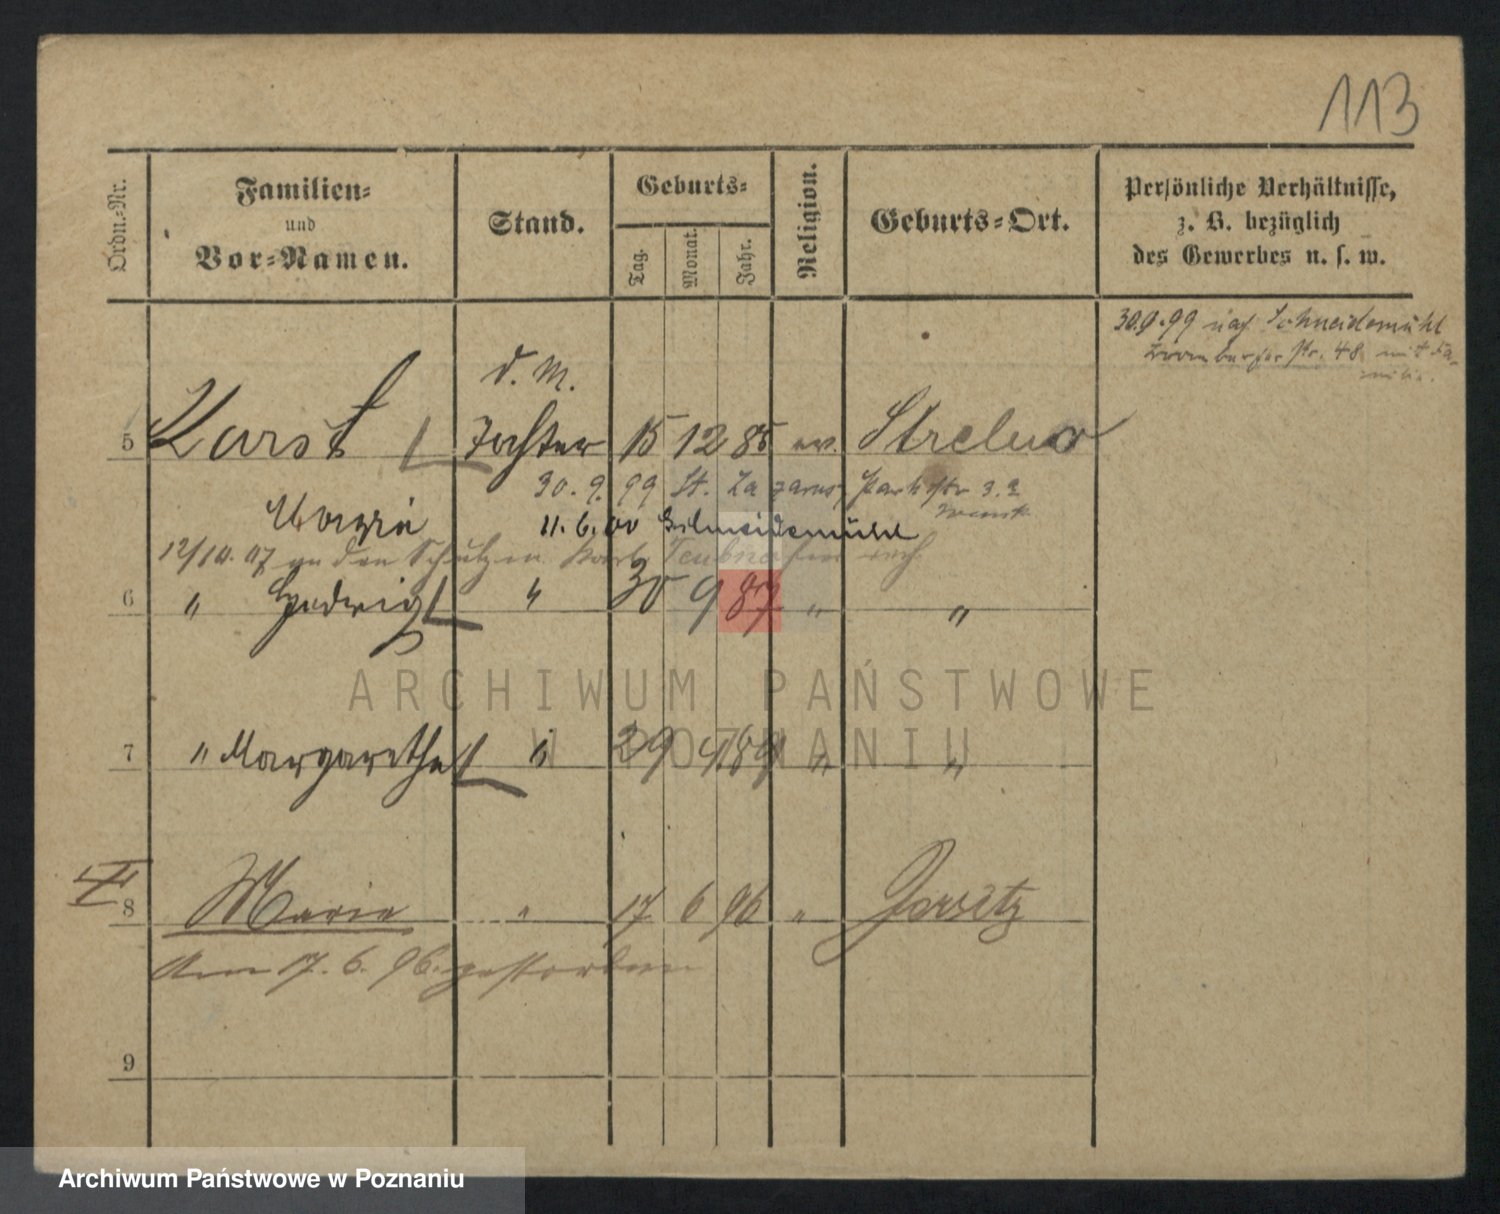 113
Ordn.-Nr.
Familien-
und
Vor-Namen.
Stand.
Geburts-
Tag.
Monat.
Jahr.
Religion.
Geburts-Ort.
Persönliche Verhältnisse,
z. B. bezüglich
des Gewerbes u. s. w.
30.9.99 nach Schneidemühl
Str. 48 mit Fa-
milie.
d. M.
5 Karst Tochter 15 12 85 ev. Strelno
30.9.99 St. Lazarus, Parkstr 3.
Maria 11.6.00 Schneidemühl
12/10.07 an den Schutzm.
6 " Hedwig " 30 9 87 " "
ARCHIWUM PAŃSTWOWE
W POZNANIU
7 " Margarethe " 29 4 89 " "
II
8 Marie " 17 6 96 " Jersitz
Am 17.6.96 gestorben
9
Archiwum Państwowe w Poznaniu